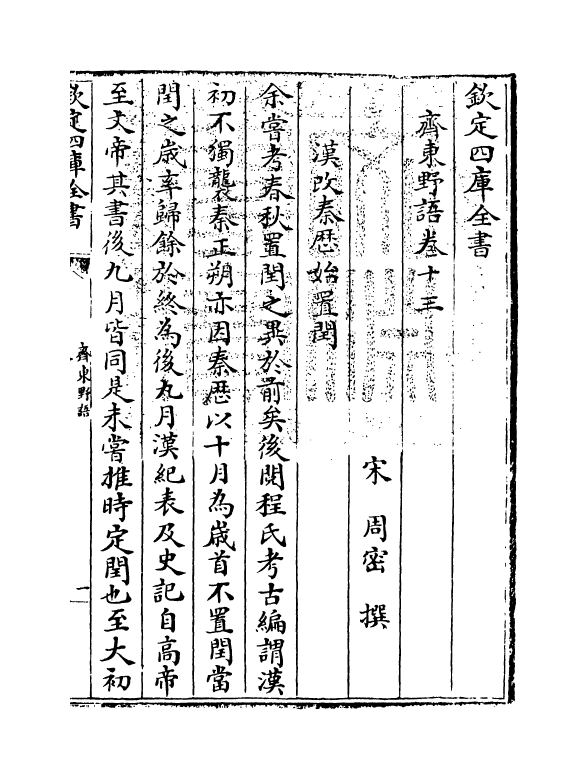 欽定四庫全書
齊東野語卷十三
宋　周密　撰
漢改秦厯始置閏
余嘗考春秋置閏之異於前矣後閱程氏考古編謂漢
初不獨襲秦正朔亦因秦厯以十月為歳首不置閏當
閏之歳率歸餘於終為後九月漢紀表及史記自高帝
至文帝其書後九月皆同是未嘗推時定閏也至大初
欽定四庫全書
齊東野語
一